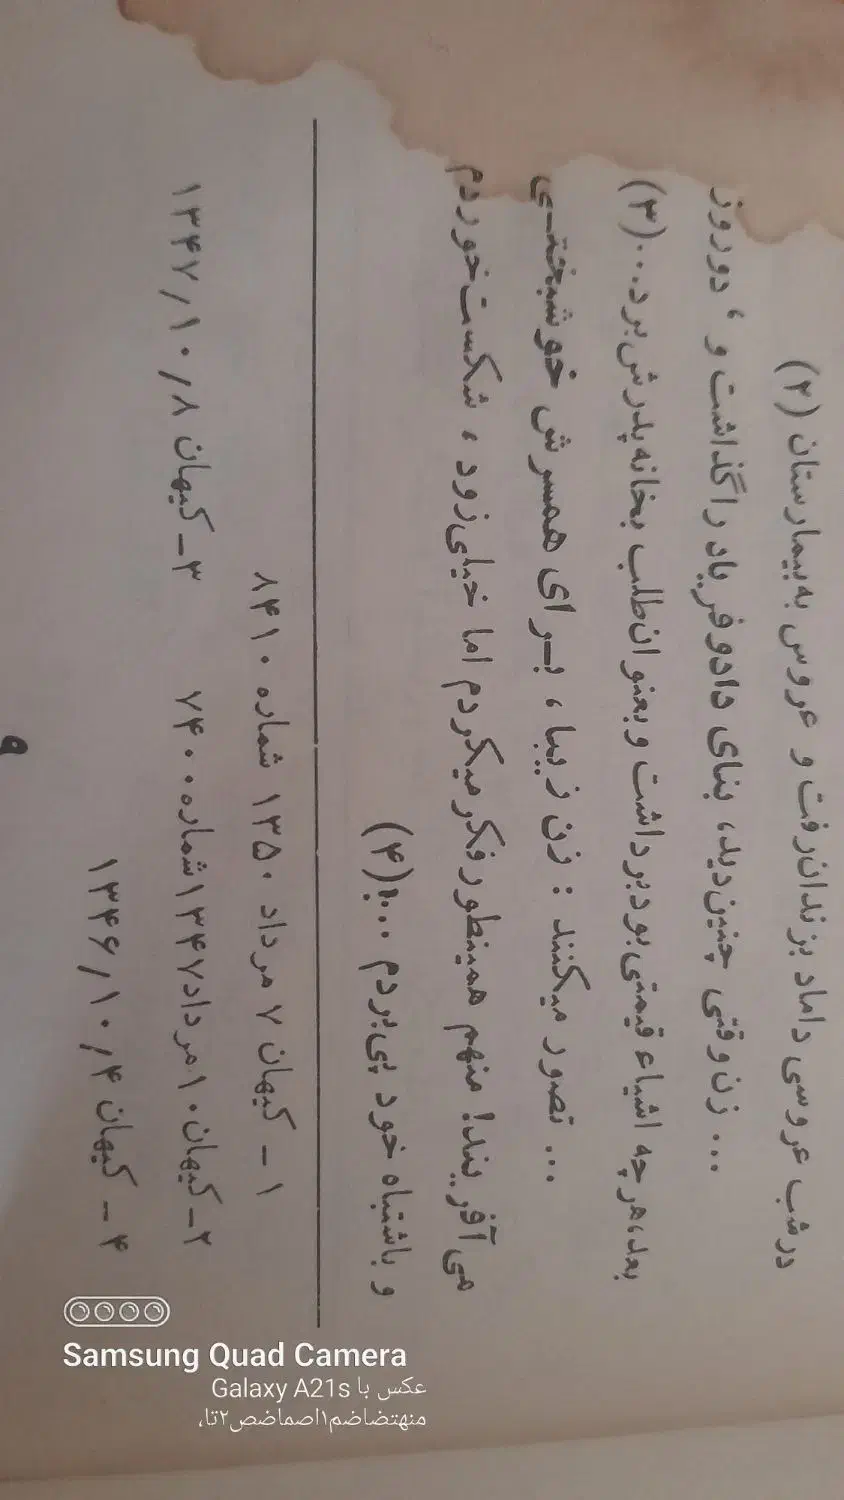 در شب عروسی داماد بزندان رفت و عروس به بیمارستان (۲)
... زن وقتی چنین دید، بنای داد و فریاد را گذاشت و ، دو روز
بعد، هر چه اشیاء قیمتی بود برداشت و بعنوان طلب بخانه پدرش برد...(۳)
... تصور میکنند : زن زیبا، برای همسرش خوشبختی
می آفریند! منهم همینطور فکر میکردم اما خیلی زود ، شکست خوردم
و باشتباه خود پی بردم ...!(۴)
۱ – کیهان ۷ مرداد ۱۳۵۰ شماره ۸۴۱۰
۲–کیهان ۱۰ مرداد ۱۳۴۷ شماره ۷۴۰۰ ۳–کیهان ۱۳۴۷/۱۰/۸
۴ – کیهان ۱۳۴۶/۱۰/۴
۹
Samsung Quad Camera
عکس با Galaxy A21s
منهتضاضم۱اصماضص۲تا،